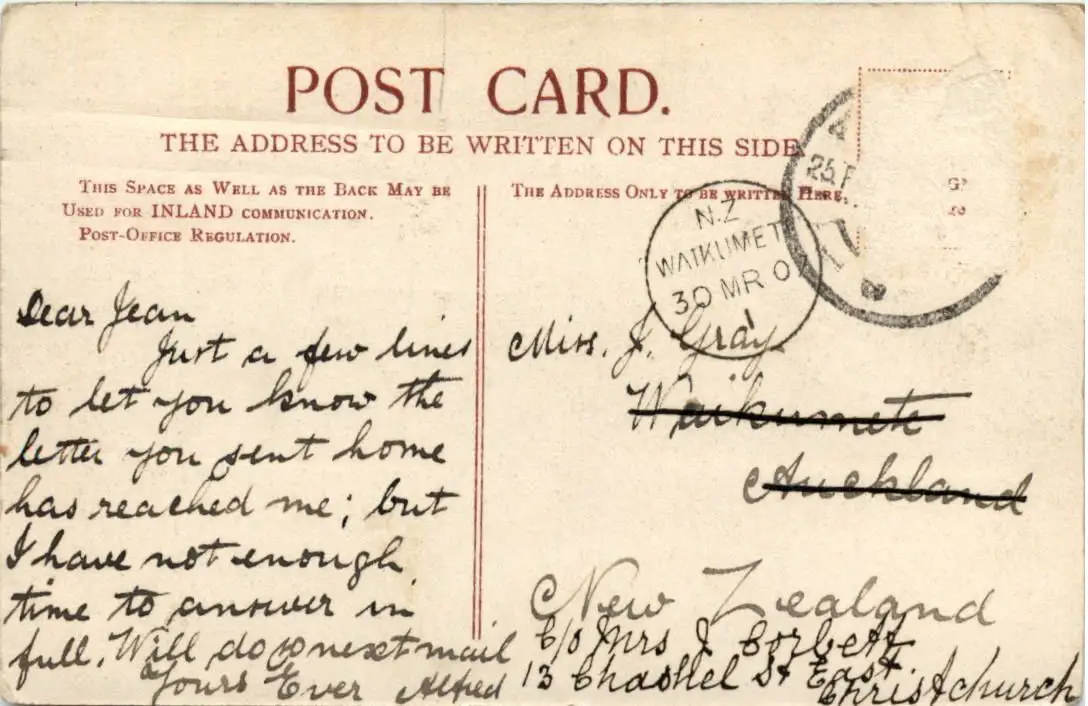 POST CARD.
THE ADDRESS TO BE WRITTEN ON THIS SIDE
THIS SPACE AS WELL AS THE BACK MAY BE
USED FOR INLAND COMMUNICATION.
POST-OFFICE REGULATION.
Dear Jean
Just a few lines
to let you know the
letter you sent home
has reached me; but
I have not enough
time to answer in
full. Will do so next mail
Yours Ever Alfred
THE ADDRESS ONLY TO BE WRITTEN HERE.
N.Z
WAIKUMET
30 MR 07
1
Miss. J. Gray
Waikumete
Auckland
New Zealand
C/o Mrs J Corbett
13 Chashel St East
Christchurch